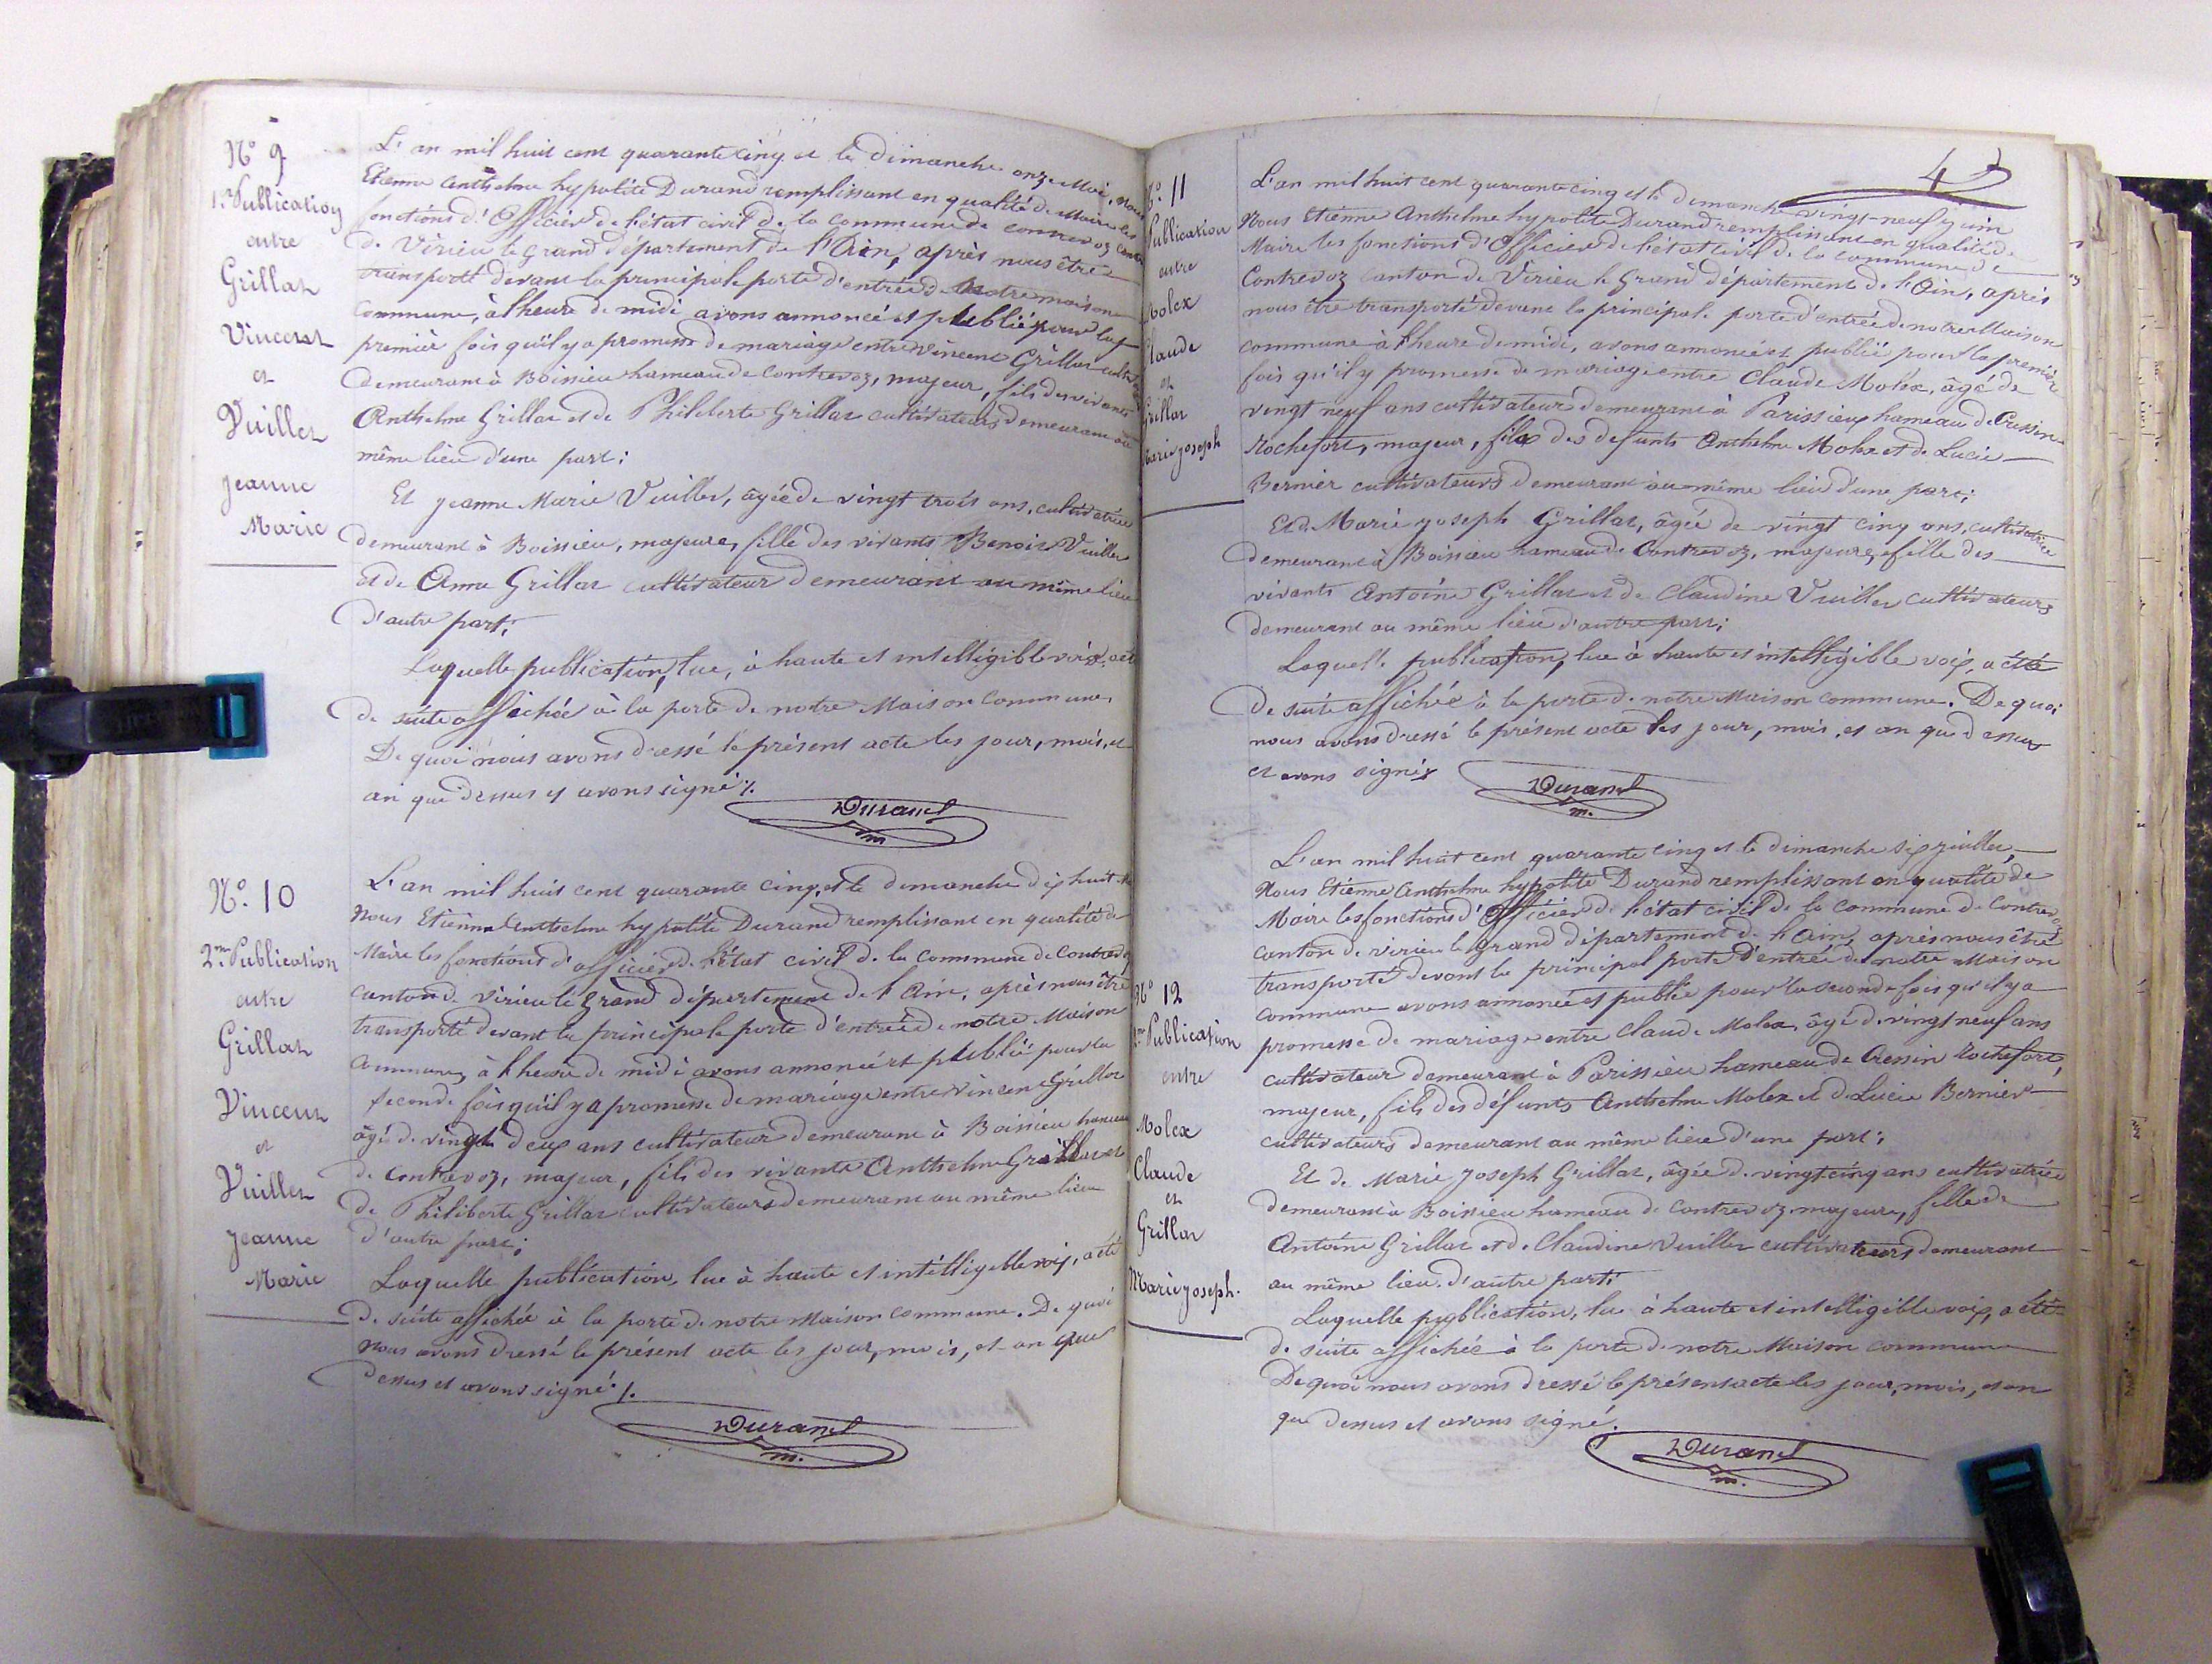 N° 9
1re Publication
entre
Grillat
Vincent
et
Vuillet
jeanne
Marie
L'an mil huit cent quarante cinq et le dimanche onze Mai, nous
Etienne Anthelme hypolite Durand remplissant en qualité de Maire les
fonctions d'Officier de l'état civil de la commune de contrevoz canton
de Virieu le Grand département de l'Ain, après nous être
transporté devant la principale porte d'entrée de Notre maison
commune, à l'heure de midi avons annoncé et publié pour la
premier fois qu'il y a promesse de mariage entre Vincent Grillat
demeurant à Boissieu hameau de Contrevoz, majeur, fils des vivants
Anthelme Grillat et de Philiberte Grillat cultivateurs demeurant au
même lieu d'une part;
Et jeanne Marie Vuillet, âgée de vingt trois ans, cultivatrice
demeurant à Boissieu, majeure, fille des vivants Benoit Vuillet
et de Anne Grillat cultivateur demeurant au même lieu
d'autre part;
Laquelle publication, lue, à haute et intelligible voix, a été
de suite affichée à la porte de notre Maison commune.
De quoi nous avons dressé le présent acte les jour, mois, et
an que dessus et avons signé ./.
Durand
m
N° 10
2me Publication
entre
Grillat
Vincent
et
Vuillet
jeanne
Marie
L'an mil huit cent quarante cinq, et le dimanche dix huit
Nous Etienne Anthelme hypolite Durand remplissant en qualité de
Maire les fonctions d'officier de l'état civil de la commune de Contrevoz
canton de Virieu le Grand département de l'Ain, après nous être
transporté devant la principale porte d'entrée de notre Maison
commune, à l'heure de midi avons annoncé et publié pour la
seconde fois qu'il y a promesse de mariage entre Vincent Grillat
âgé de vingt deux ans cultivateur demeurant à Boissieu hameau
de contrevoz, majeur, fils des vivants Anthelme Grillat et
de Philiberte Grillat cultivateurs demeurant au même lieu
d'autre part;
Laquelle publication, lue à haute et intelligible voix, a été
de suite affichée à la porte de notre Maison commune. De quoi
nous avons dressé le présent acte les jour, mois, et an que
dessus et avons signé ./.
Durand
m.
4
N° 11
Publication
entre
Molex
Claude
et
Grillat
Marie joseph
L'an mil huit cent quarante cinq et le dimanche vingt-neuf juin
Nous Etienne Anthelme hypolite Durand remplissant en qualité de
Maire les fonctions d'Officier de l'état civil de la commune de
Contrevoz canton de Virieu le Grand département de l'Ain, après
nous être transporté devant la principale porte d'entrée de notre Maison
commune à l'heure de midi, avons annoncé et publié pour la première
fois qu'il y promesse de mariage entre Claude Molex, âgé de
vingt neuf ans cultivateur demeurant à Parissieu hameau de Cressin
Rochefort, majeur, fils des defunts Anthelme Molex et de Lucie
Bernier cultivateurs demeurant au même lieu d'une part;
Et de Marie joseph Grillat, âgée de vingt cinq ans, cultivatrice
demeurant à Boissieu hameau de Contrevoz, majeure, fille des
vivants Antoine Grillat et de Claudine Vuillet cultivateurs
demeurant au même lieu d'autre part;
Laquelle publication, lue à haute et intelligible voix, a été
de suite affichée à la porte de notre Maison commune. De quoi
nous avons dressé le présent acte les jour, mois, et an que dessus
et avons signé
Durand
m.
N° 12
2me Publication
entre
Molex
Claude
et
Grillat
Marie joseph.
L'an mil huit cent quarante cinq et le dimanche six juillet,
Nous Etienne Anthelme hypolite Durand remplissant en qualité de
Maire les fonctions d'Officier de l'état civil de la commune de Contrevoz
canton de virieu le Grand département de l'Ain, après nous être
transporté devant la principal porte d'entrée de notre Maison
commune avons annoncé et publié pour la seconde fois qu'il y a
promesse de mariage entre Claude Molex, âgé de vingt neuf ans
cultivateur demeurant à Parissieu hameau de Cressin Rochefort,
majeur, fils des défunts Anthelme Molex et de Lucie Bernier
cultivateurs demeurant au même lieu d'une part;
Et de Marie joseph Grillat, âgée de vingt cinq ans cultivatrice
demeurant à Boissieu hameau de Contrevoz majeure, fille de
Antoine Grillat et de Claudine Vuillet cultivateurs demeurant
au même lieu d'autre part.
Laquelle publication, lue à haute et intelligible voix, a été
de suite affichée à la porte de notre Maison commune
De quoi nous avons dressé le présent acte les jour, mois, et an
que dessus et avons signé.
Durand
m.